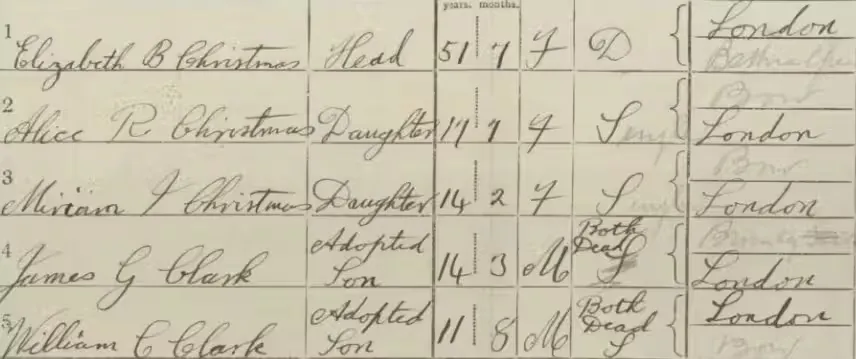 years. months.
1 Elizabeth B Christmas Head 51 7 F D London
Bow
2 Alice R Christmas Daughter 17 7 F Single London
Bow
3 Miriam J Christmas Daughter 14 2 F Single London
4 James G Clark Adopted Son 14 3 M Both Dead S London
5 William C Clark Adopted Son 11 8 M Both Dead S London
Bow